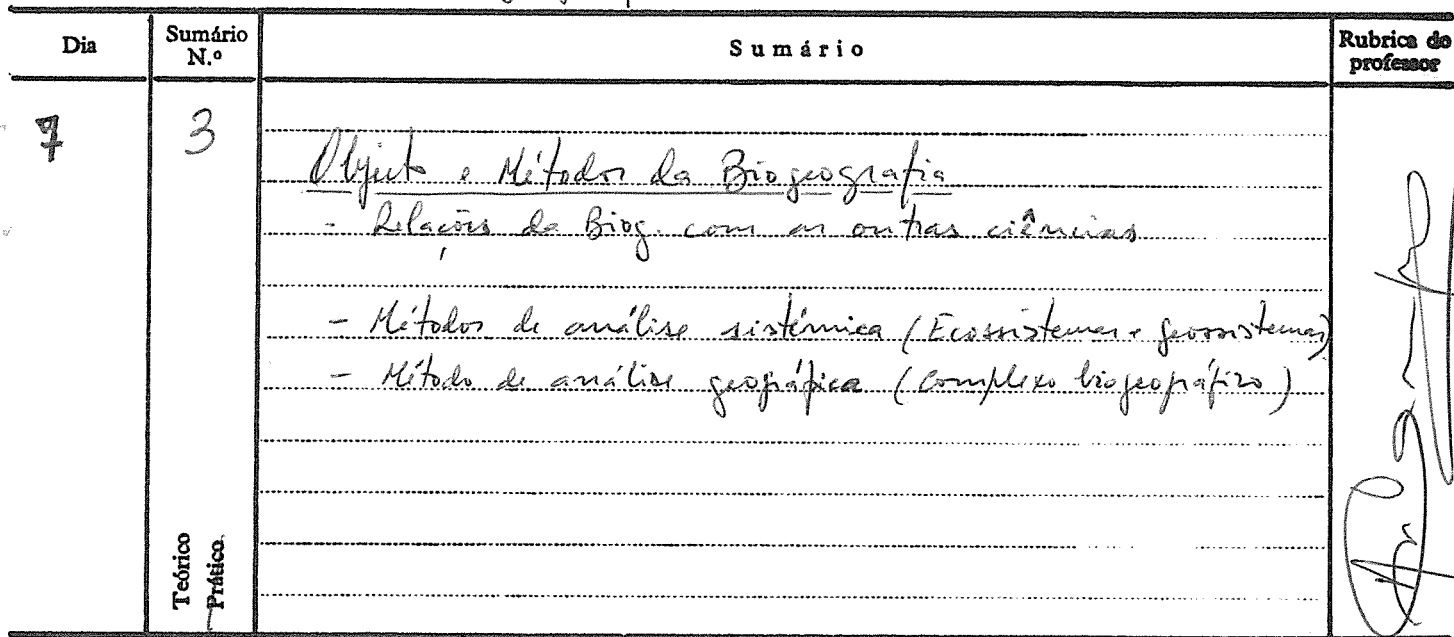 Dia
Sumário
N.º
Sumário
Rubrica do
professor
7
3
Objecto e Métodos da Biogeografia
- Relações da Biog. com as outras ciências
- Métodos de análise sistémica (Ecossistemas e geossistemas)
- Método de análise geográfica (complexo biogeográfico)
Teórico
Prático.